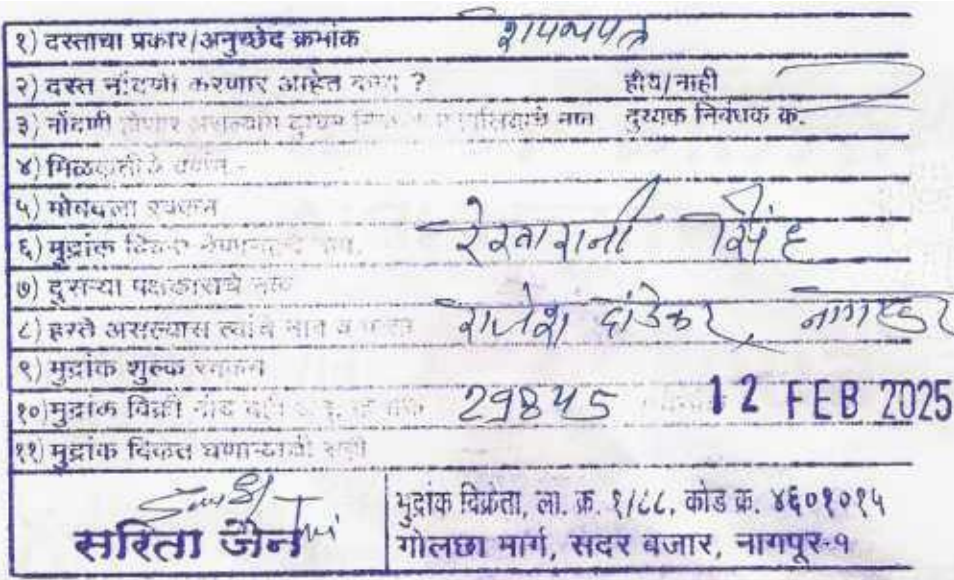 १) दस्ताचा प्रकार/अनुच्छेद क्रमांक
२) दस्त नोंदणी करणार आहेत काय ? होय/नाही
३) नोंदणी होणार असल्यास दुय्यम दुय्यक निबंधक क्र.
४) मिळकतीचे वर्णन -
५) मोबदला रक्कम
६) मुद्रांक विकत घेणाऱ्याचे नाव रेखारानी सिंह
७) दुसऱ्या पक्षकाराचे नाव
८) हस्ते असल्यास त्यांचे नाव व पत्ता राजेश दांडेकर, नागपूर
९) मुद्रांक शुल्क रक्कम
१०) मुद्रांक विक्री नोंद 29845 12 FEB 2025
११) मुद्रांक विकत घेणाऱ्याची सही
सरिता जैन
मुद्रांक विक्रेता, ला. क्र. १/८८, कोड क्र. ४६०१०१५
गोलछा मार्ग, सदर बजार, नागपूर-१